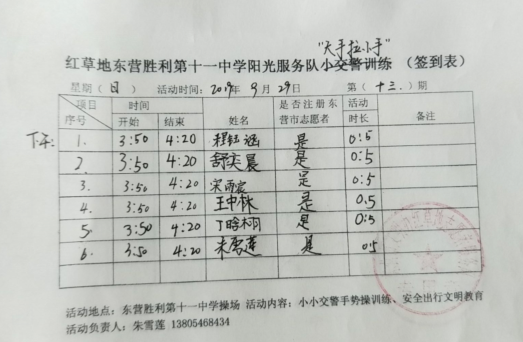 "大手拉小手"
红草地东营胜利第十一中学阳光服务队小交警训练 （签到表）
星期（日） 活动时间：2019年 9月 29日 第（十三.）期
项目 序号 时间 姓名 是否注册东营市志愿者 活动时长 备注
开始 结束
下午： 1. 3:50 4:20 程钰涵 是 0:5
2. 3:50 4:20 舒奕晨 是 0:5
3. 3:50 4:20 宋雨宸 是 0:5
4. 3:50 4:20 王中林 是 0.5
5. 3:50 4:20 丁晗栩 是 0:5
6. 3:50 4:20 朱雪莲 是 0.5
活动地点：东营胜利第十一中学操场 活动内容：小小交警手势操训练、安全出行文明教育
活动负责人：朱雪莲 13805468434